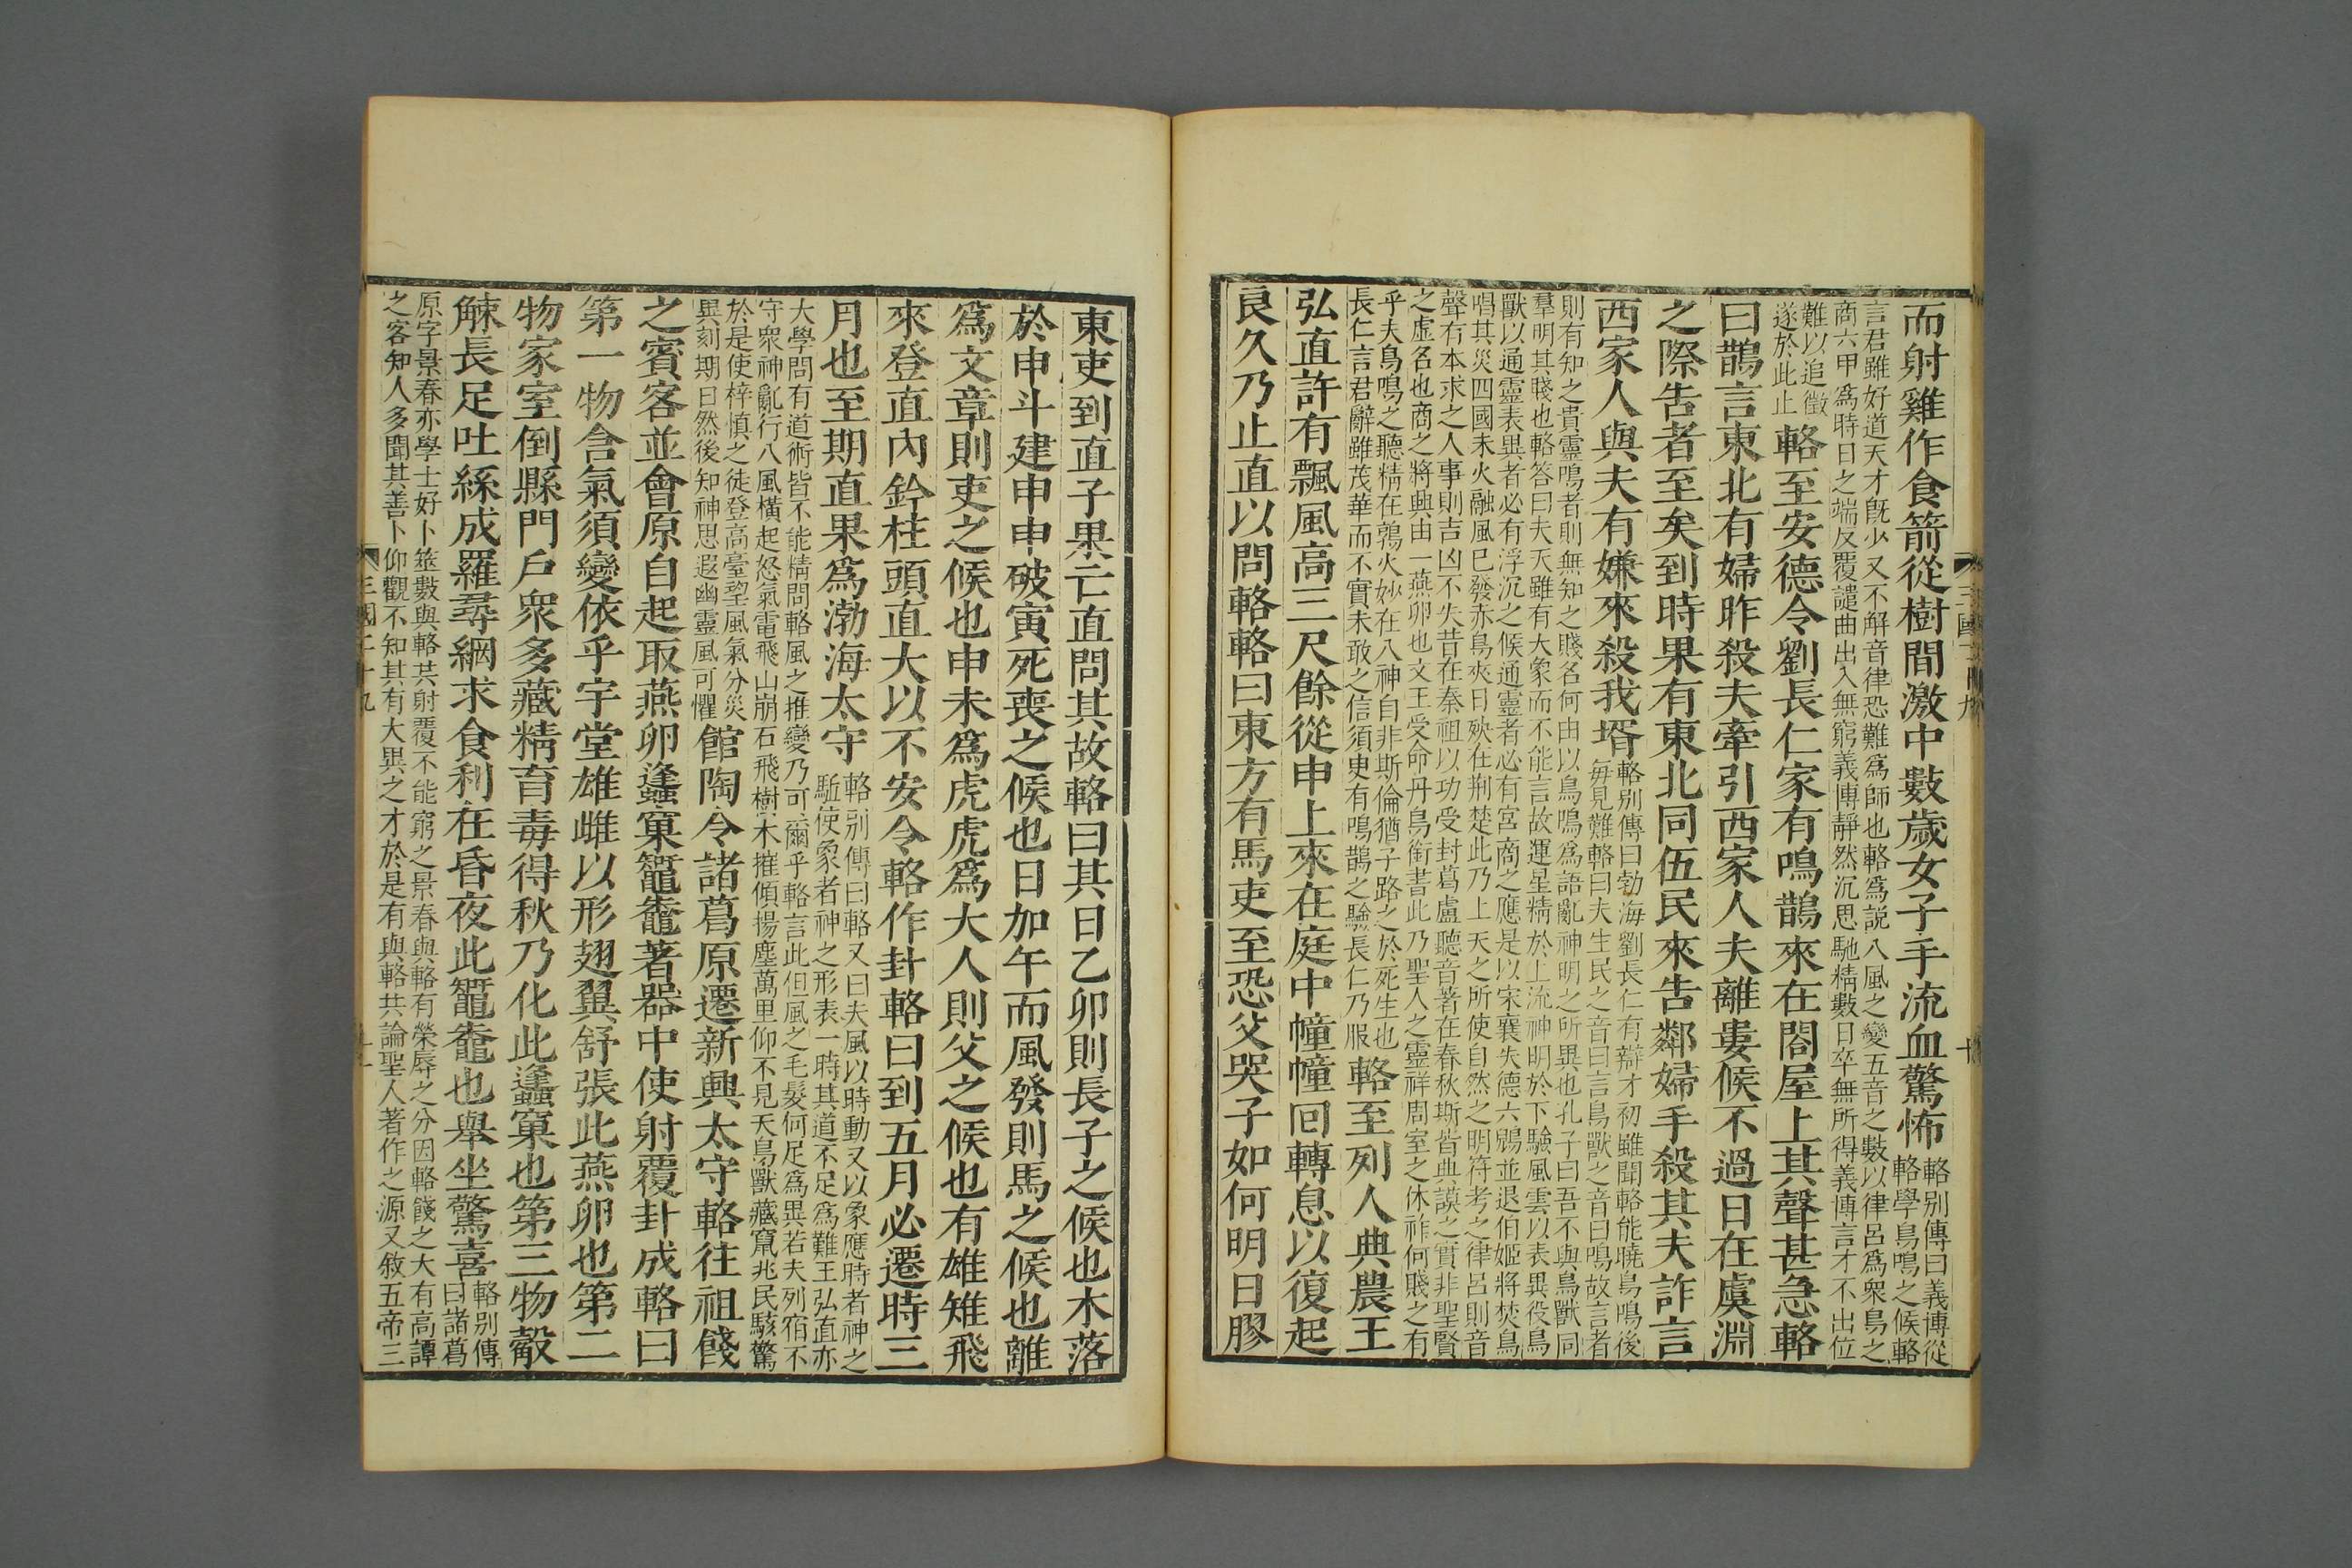 而射雞作食箭從樹間激中數歲女子手流血驚怖
輅別傳曰義博從
輅學鳥鳴之候輅
言君雖好道天才既少又不解音律恐難爲師也輅爲說八風之變五音之數以律呂爲衆鳥之
商六甲爲時日之端反覆譴曲出入無窮義博靜然沉思馳精數日卒無所得義博言才不出位
難以追徵
遂於此止
輅至安德令劉長仁家有鳴鵲來在閤屋上其聲甚急輅
曰鵲言東北有婦昨殺夫牽引西家人夫離婁候不過日在虞淵
之際告者至矣到時果有東北同伍民來告鄰婦手殺其夫詐言
西家人與夫有嫌來殺我壻
輅別傳曰勃海劉長仁有辯才初雖聞輅能曉鳥鳴後
每見難輅曰夫生民之音曰言鳥獸之音曰鳴故言者
則有知之貴靈鳴者則無知之賤名何由以鳥鳴爲語亂神明之所異也孔子曰吾不與鳥獸同
羣明其賤也輅答曰夫天雖有大象而不能言故運星精於上流神明於下驗風雲以表異役鳥
獸以通靈表異者必有浮沉之候通靈者必有宮商之應是以宋襄失德六鶂並退伯姬將焚鳥
唱其災四國未火融風已發赤鳥夾日殃在荊楚此乃上天之所使自然之明符考之律呂則音
聲有本求之人事則吉凶不失昔在秦祖以功受封葛盧聽音著在春秋斯皆典謨之實非聖賢
之虛名也商之將興由一燕卵也文王受命丹鳥銜書此乃聖人之靈祥周室之休祚何賤之有
乎夫鳥鳴之聽精在鶉火妙在八神自非斯倫猶子路之於死生也
長仁言君辭雖茂華而不實未敢之信須臾有鳴鵲之驗長仁乃服
輅至列人典農王
弘直許有飄風高三尺餘從申上來在庭中幢幢回轉息以復起
良久乃止直以問輅輅曰東方有馬吏至恐父哭子如何明日膠
東吏到直子果亡直問其故輅曰其日乙卯則長子之候也木落
於申斗建申申破寅死喪之候也日加午而風發則馬之候也離
爲文章則吏之候也申未爲虎虎爲大人則父之候也有雄雉飛
來登直內鈴柱頭直大以不安令輅作卦輅曰到五月必遷時三
月也至期直果爲渤海太守
輅別傳曰輅又曰夫風以時動又以象應時者神之
駈使象者神之形表一時其道不足爲難王弘直亦
大學問有道術皆不能精問輅風之推變乃可爾乎輅言此但風之毛髮何足爲異若夫列宿不
守衆神亂行八風橫起怒氣電飛山崩石飛樹木摧傾揚塵萬里仰不見天鳥獸藏竄兆民駭驚
於是使梓慎之徒登高臺望風氣分災
異刻期日然後知神思遐幽靈風可懼
館陶令諸葛原遷新興太守輅往祖餞
之賓客並會原自起取燕卵蠭窠䵹鼄著器中使射覆卦成輅曰
第一物含氣須變依乎宇堂雄雌以形翅翼舒張此燕卵也第二
物家室倒縣門戶衆多藏精育毒得秋乃化此蠭窠也第三物觳
觫長足吐絲成羅尋網求食利在昏夜此䵹鼄也舉坐驚喜
輅別傳
曰諸葛
原字景春亦學士好卜筮數與輅共射覆不能窮之景春與輅有榮辱之分因輅餞之大有高譚
之客知人多聞其善卜仰觀不知其有大異之才於是有與輅共論聖人著作之源又敘五帝三